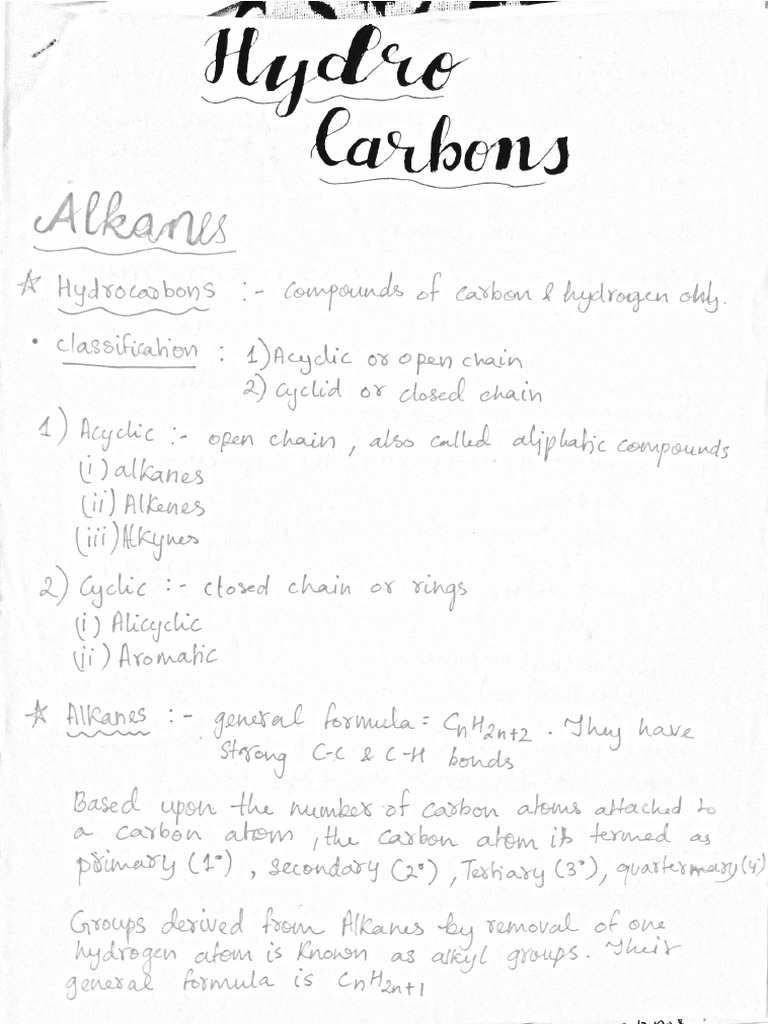 Hydro
Carbons
Alkanes
☆ Hydrocarbons :- compounds of carbon & hydrogen only.
• classification : 1) Acyclic or open chain
2) cyclid or closed chain
1) Acyclic :- open chain, also called aliphatic compounds
(i) alkanes
(ii) Alkenes
(iii) Alkynes
2) Cyclic :- closed chain or rings
(i) Alicyclic
(ii) Aromatic
☆ Alkanes :- general formula = CnH2n+2. They have
strong C-C & C-H bonds
Based upon the number of carbon atoms attached to
a carbon atom, the carbon atom is termed as
primary (1°), secondary (2°), Tertiary (3°), quartermary (4°)
Groups derived from Alkanes by removal of one
hydrogen atom is known as alkyl groups. Their
general formula is CnH2n+1